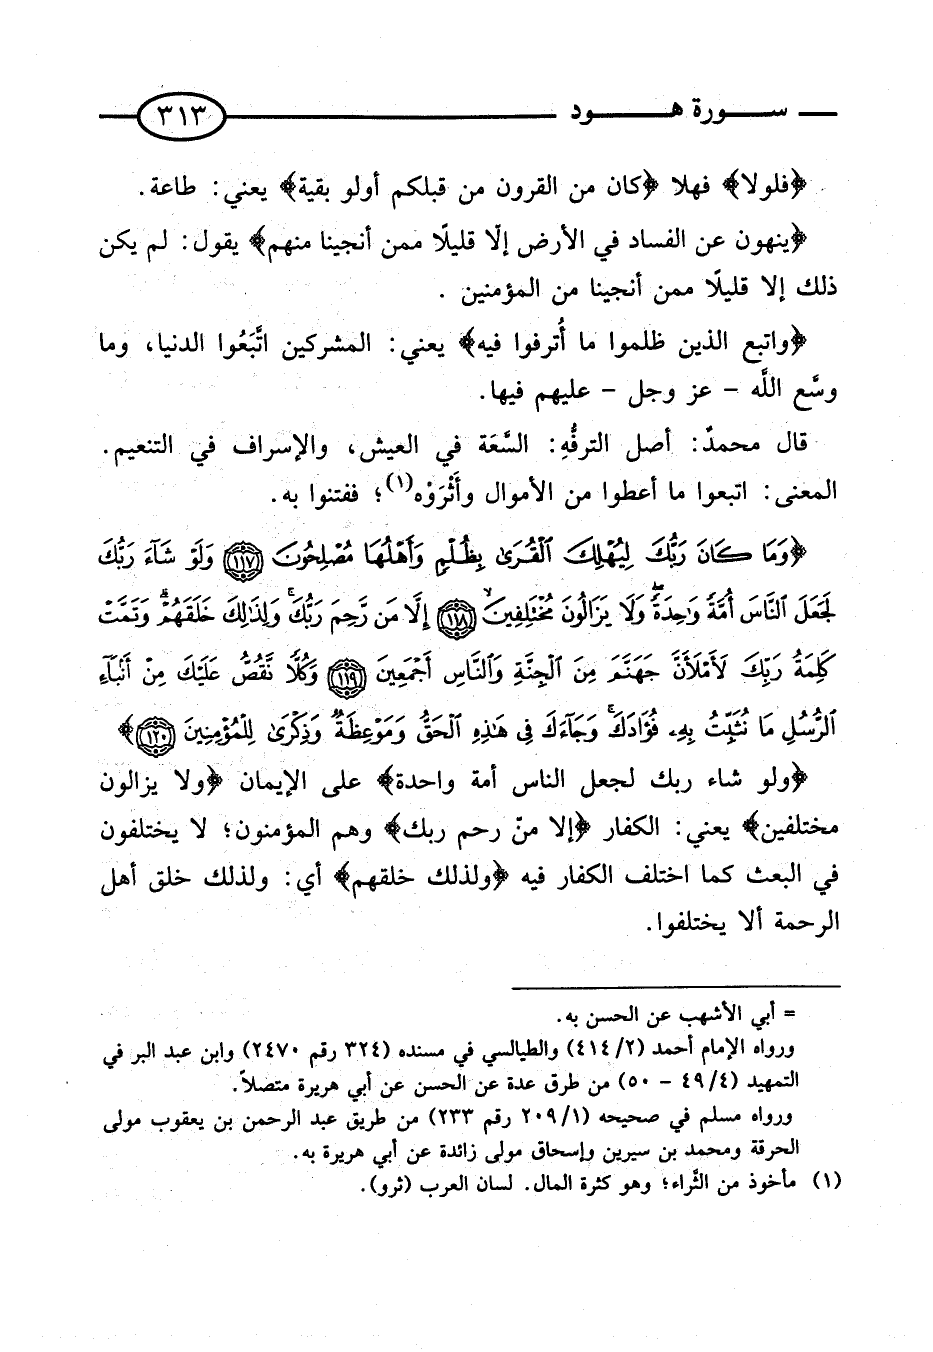 سورة هود ٣١٣
﴿فلولا﴾ فهلا ﴿كان من القرون من قبلكم أولو بقية﴾ يعني: طاعة.
﴿ينهون عن الفساد في الأرض إلّا قليلًا ممن أنجينا منهم﴾ يقول: لم يكن
ذلك إلا قليلًا ممن أنجينا من المؤمنين .
﴿واتبع الذين ظلموا ما أُترفوا فيه﴾ يعني: المشركين اتَّبَعُوا الدنيا، وما
وسَّع اللَّه - عز وجل - عليهم فيها.
قال محمدٌ: أصل الترفُّهِ: السَّعَة في العيش، والإسراف في التنعيم.
المعنى: اتبعوا ما أعطوا من الأموال وأَثْرَوْه(١)؛ ففتنوا به.
﴿وَمَا كَانَ رَبُّكَ لِيُهْلِكَ ٱلْقُرَىٰ بِظُلْمٍ وَأَهْلُهَا مُصْلِحُونَ ١١٧ وَلَوْ شَآءَ رَبُّكَ
لَجَعَلَ ٱلنَّاسَ أُمَّةً وَٰحِدَةً ۖ وَلَا يَزَالُونَ مُخْتَلِفِينَ ۙ ١١٨ إِلَّا مَن رَّحِمَ رَبُّكَ ۚ وَلِذَٰلِكَ خَلَقَهُمْ ۗ وَتَمَّتْ
كَلِمَةُ رَبِّكَ لَأَمْلَأَنَّ جَهَنَّمَ مِنَ ٱلْجِنَّةِ وَٱلنَّاسِ أَجْمَعِينَ ١١٩ وَكُلًّا نَّقُصُّ عَلَيْكَ مِنْ أَنۢبَآءِ
ٱلرُّسُلِ مَا نُثَبِّتُ بِهِۦ فُؤَادَكَ ۚ وَجَآءَكَ فِى هَٰذِهِ ٱلْحَقُّ وَمَوْعِظَةٌ وَذِكْرَىٰ لِلْمُؤْمِنِينَ ١٢٠﴾
﴿ولو شاء ربك لجعل الناس أمة واحدة﴾ على الإيمان ﴿ولا يزالون
مختلفين﴾ يعني: الكفار ﴿إلا منّ رحم ربك﴾ وهم المؤمنون؛ لا يختلفون
في البعث كما اختلف الكفار فيه ﴿ولذلك خلقهم﴾ أي: ولذلك خلق أهل
الرحمة ألا يختلفوا.
= أبي الأشهب عن الحسن به.
ورواه الإمام أحمد (٢/ ٤١٤) والطيالسي في مسنده (٣٢٤ رقم ٢٤٧٠) وابن عبد البر في
التمهيد (٤/ ٤٩ - ٥٠) من طرق عدة عن الحسن عن أبي هريرة متصلاً.
ورواه مسلم في صحيحه (١/ ٢٠٩ رقم ٢٣٣) من طريق عبد الرحمن بن يعقوب مولى
الحرقة ومحمد بن سيرين وإسحاق مولى زائدة عن أبي هريرة به.
(١) مأخوذ من الثَّراء؛ وهو كثرة المال. لسان العرب (ثرو).